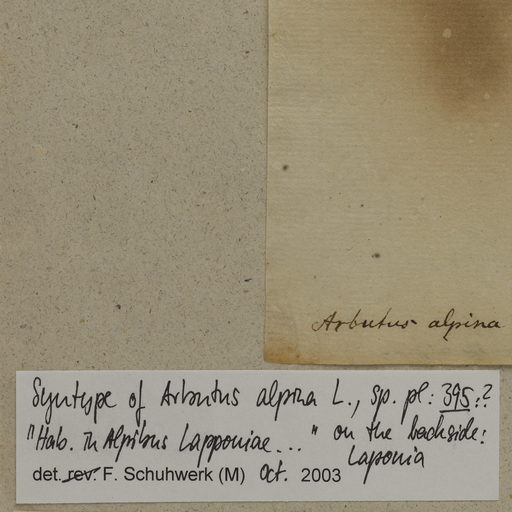 Arbutus alpina
Syntype of Arbutus alpina L., sp. pl: 395:?
"Hab. in Alpibus Lapponiae..." on the backside:
Laponia
det. rev. F. Schuhwerk (M) Oct. 2003